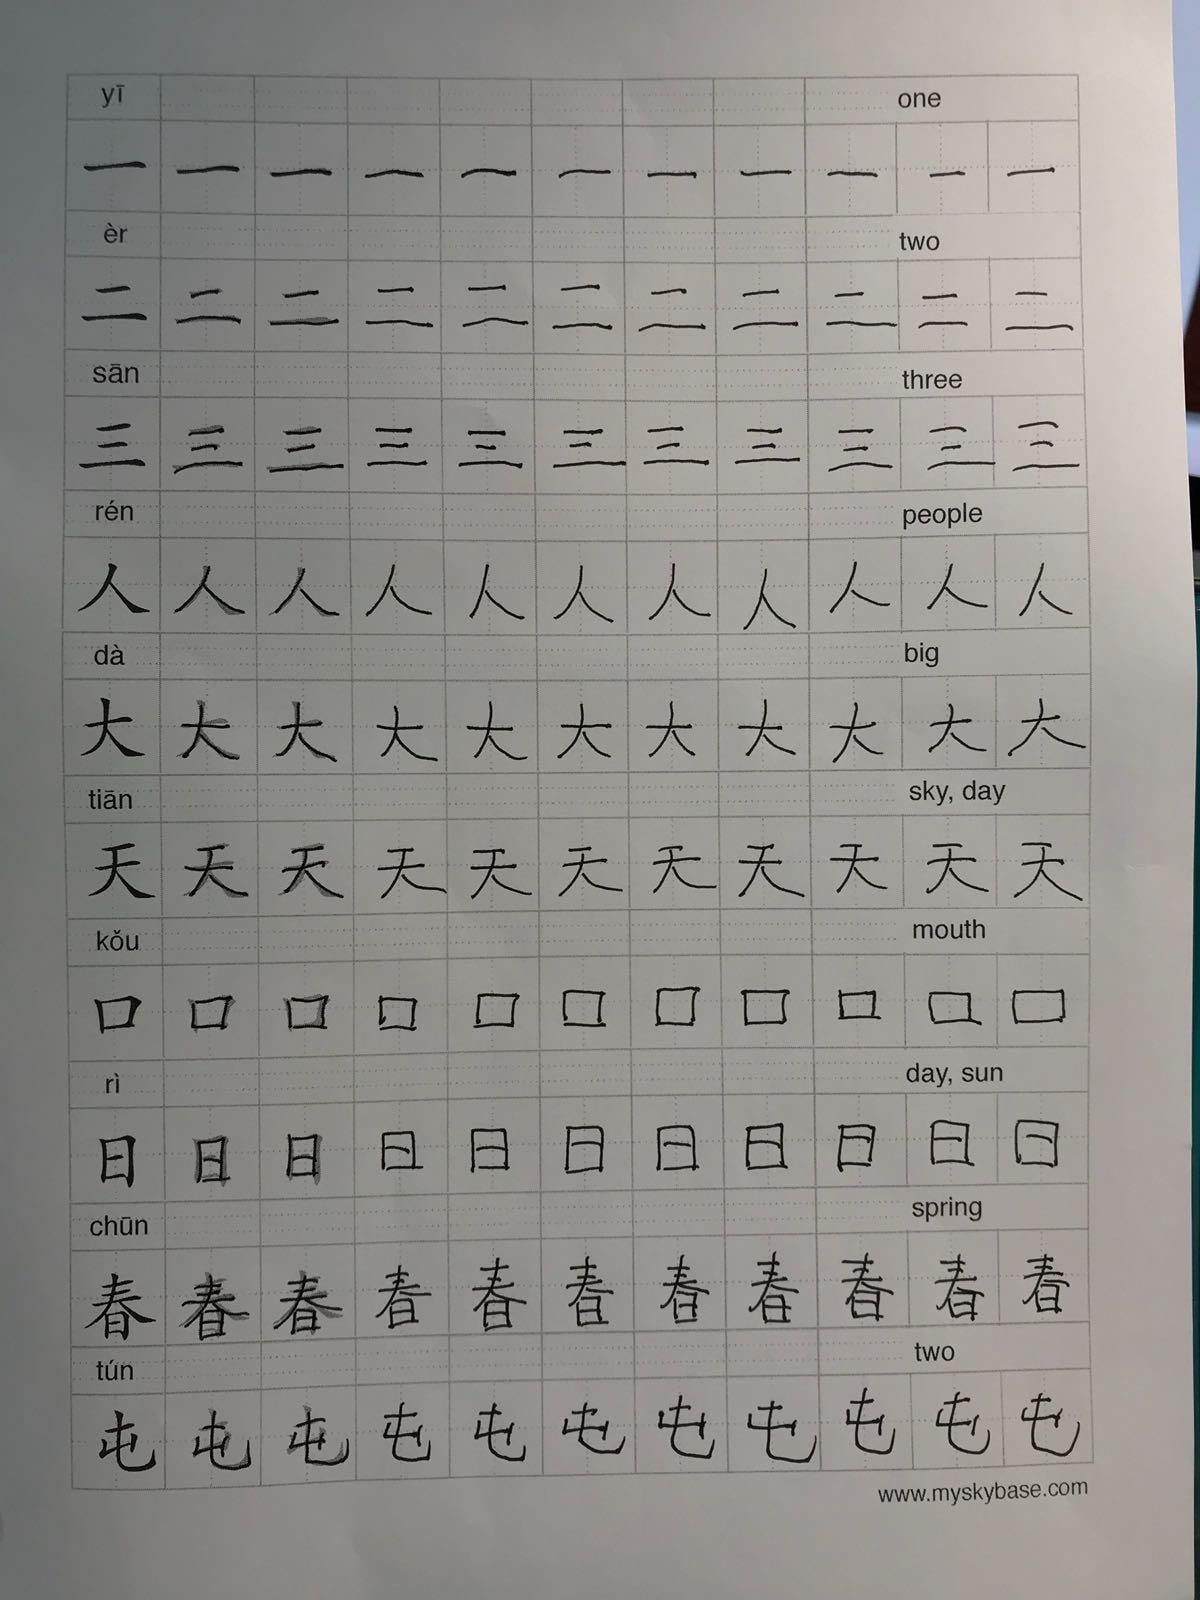 yī one
一 一 一 一 一 一 一 一 一 一 一
èr two
二 二 二 二 二 二 二 二 二 二 二
sān three
三 三 三 三 三 三 三 三 三 三 三
rén people
人 人 人 人 人 人 人 人 人 人 人
dà big
大 大 大 大 大 大 大 大 大 大 大
tiān sky, day
天 天 天 天 天 天 天 天 天 天 天
kǒu mouth
口 口 口 口 口 口 口 口 口 口 口
rì day, sun
日 日 日 日 日 日 日 日 日 日 日
chūn spring
春 春 春 春 春 春 春 春 春 春 春
tún two
屯 屯 屯 屯 屯 屯 屯 屯 屯 屯 屯
www.myskybase.com